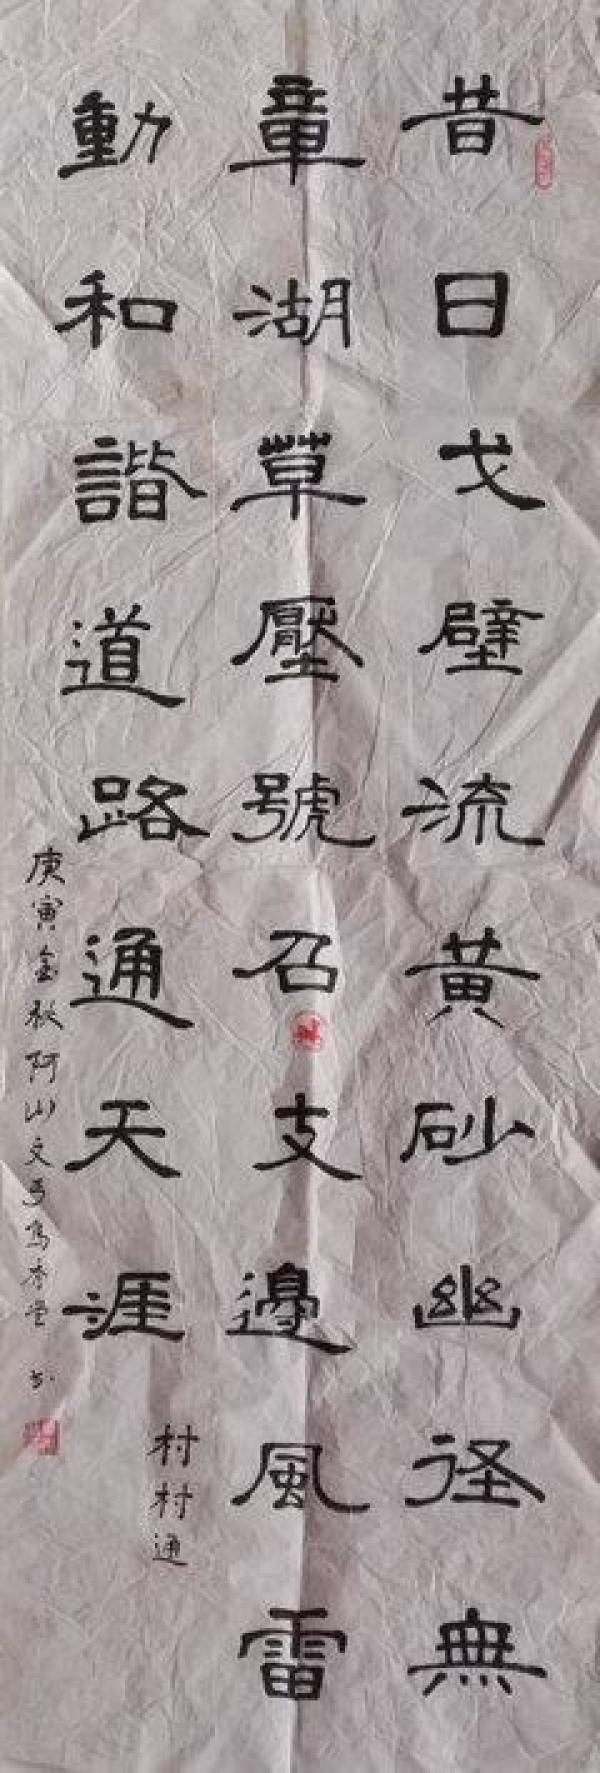 昔日戈壁流黄砂幽径無
章湖草壓號召支邊風雷
動和諧道路通天涯
村村通
庚寅金秋阿山文
书